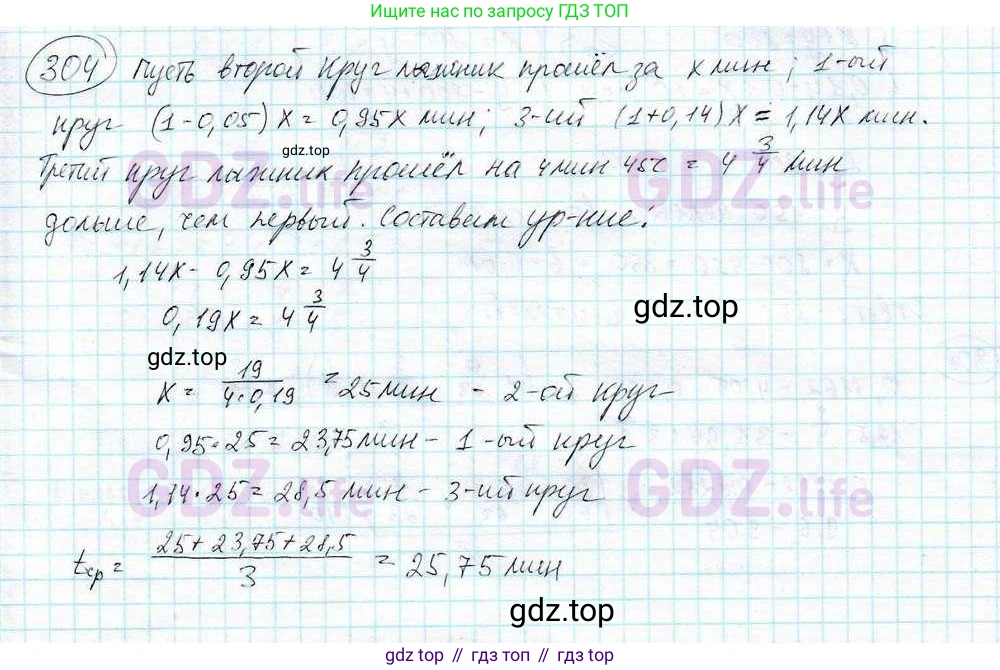 Ищите по запросу ГДЗ ТОП
304 Пусть второй круг лыжник прошёл за x мин; 1-ый
круг (1-0,05)x = 0,95x мин; 3-ий (1+0,14)x = 1,14x мин.
gdz.top
Третий круг лыжник прошёл на 4 мин 45с = 4 3/4 мин
GDZ.life GDZ.life
дольше, чем первый. Составим ур-ние:
1,14x - 0,95x = 4 3/4
0,19x = 4 3/4
gdz.top
gdz.top
x = 19/(4·0,19) = 25 мин - 2-ой круг
0,95·25 = 23,75 мин - 1-ый круг
GDZ.life GDZ.life
1,14·25 = 28,5 мин - 3-ий круг
tср = (25+23,75+28,5)/3 = 25,75 мин
gdz.top
gdz.top // gdz.top // gdz.top